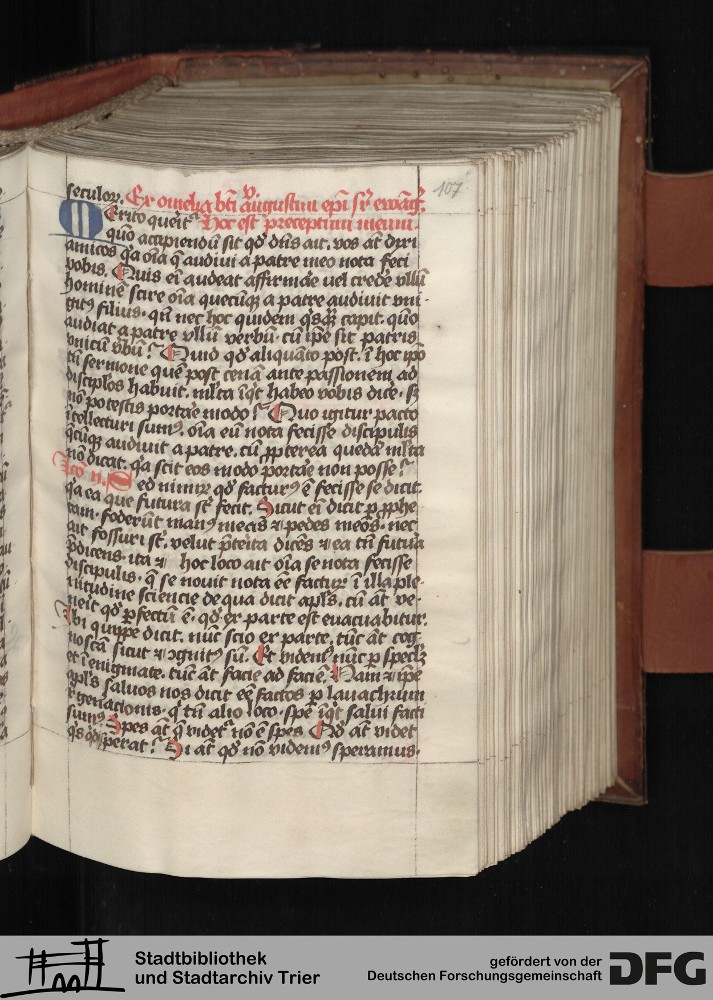 107
seculoꝝ. Ex omelia bti v̾. augustini epi sr̄ ewāg̃.
Merito querit᷑ Hoc est preceptum meum.
quō accipiendū sit qd̛ dn̄s ait. vos aūt dixi
amicos q̛a oīa q̄ audivi a patre meo nota feci
vobis. Quis ei audeat affirmare uel crede̛ vllū
hominē scire oīa quecūqꝫ a patre audiuit vni-
git⁹ filius. qn̄ nec hoc quidem q̛sqꝫ capit. quō
audiat a patre vllū verbū. cū ip̄e sit patris
vnicū v̛bū? Quid qd̛ aliquāto post. ī hoc ip̄o
tn̄ sermone quē post cenā ante passionem ad
discip̄los habuit. ml̛ta īq̛t habeo vobis dice̛. sꝫ
nō potestis portare modo? Quo igitur pacto
ītellecturi sum⁹. oīa eū nota fecisse discipulis
q̄cūqꝫ audiuit a patre. cū ꝓpterea quedā ml̛ta
nō dicat. q̛a scit eos modo portare non posse?
Lc̄o ij. Sed nimiꝝ qd̛ factur⁹ ē fecisse se dicit.
q̛a ea que futura st̄ fecit. Sicut ei dicit ꝑ ꝓphe-
tam. foderūt man⁹ meas ⁊ pedes meos. nec
ait fossuri st̄. velut p̄terita dicēs ⁊ ea tn̄ futura
p̄dicens. ita ⁊ hoc loco ait oīa se nota fecisse
discipulis. q̄ se nouit nota eē facturū ī illa ple-
nitudine sciencie de qua dicit apl̄s. cū aūt ve-
neit qd̛ ꝑfectū ē. qd̛ ex parte est euacuabitur.
Ibi quippe dicit. nūc scio ex parte. tūc aūt cog-
noscā sicut ⁊ ↄgnit⁹ sū. Et videm⁹ nūc ꝑ speculū
et ī enigmate. tūc aūt facie ad faciē. Nam ⁊ ip̄e
apl̄s saluos nos dicit eē factos ꝑ lauachrum
r̄generationis. q̛ tn̄ alio loco. spē īq̛t salui facti
sum⁹. Spes aūt q̄ videt᷑ nō ē spes. Qd̛ aūt videt
q̛s q̛d sperat? Si aūt qd̛ nō videm⁹ speramus.
Stadtbibliothek
und Stadtarchiv Trier
gefördert von der
Deutschen Forschungsgemeinschaft
DFG